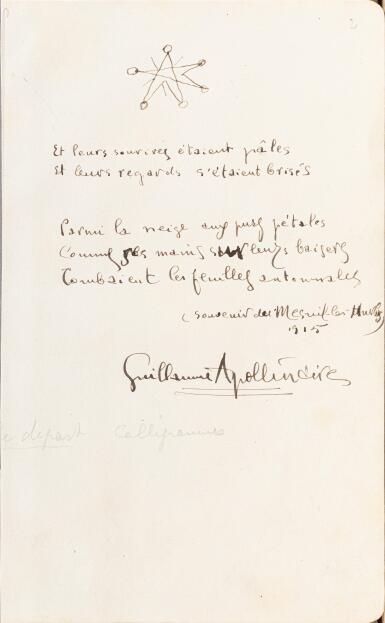 2
Et leurs sourires étaient pâles
Et leurs regards s'étaient brisés
Parmi la neige aux purs pétales
Comme ses mains sur leurs baisers
Tombaient les feuilles automnales
(souvenir du Mesnil-les-Hurlus
1915
Guillaume Apollinaire
Le départ Calligrammes